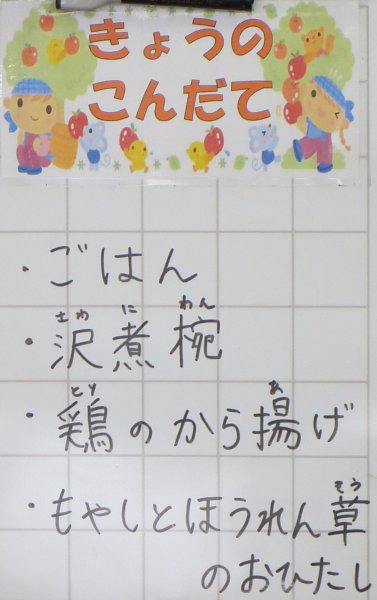 きょうの
こんだて
・ごはん
さわ に わん
・沢煮椀
とり あ
・鶏のから揚げ
そう
・もやしとほうれん草
のおひたし